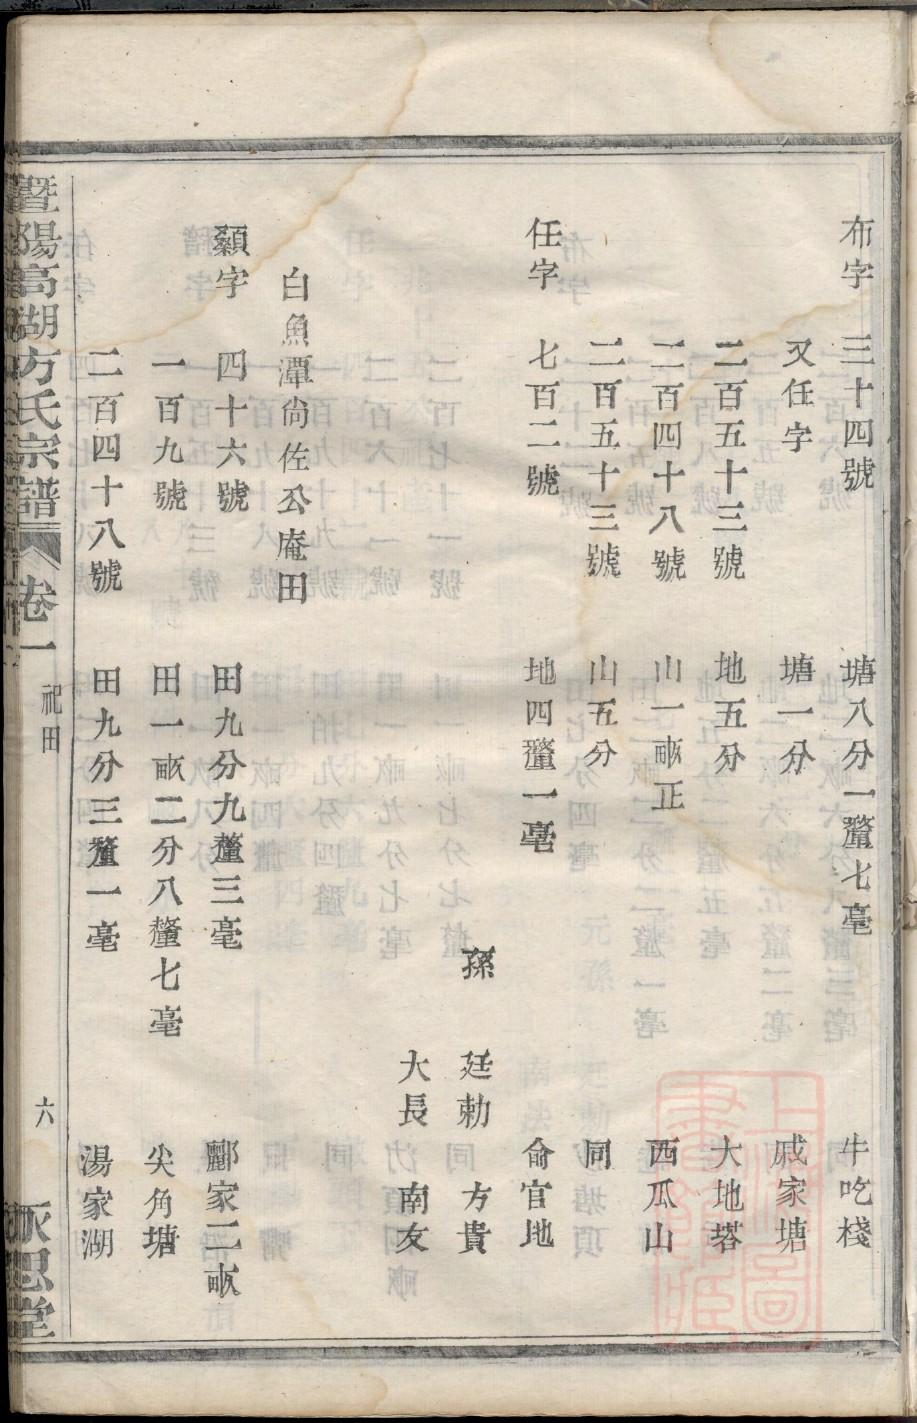 布字 三十四號 塘八分一釐七毫 牛吃棧
又任字 塘一分 戚家塘
二百五十三號 地五分 大地塔
二百四十八號 山一畝正 西瓜山
二百五十三號 山五分 同
任字 七百二號 地四釐一毫 俞官地
孫 廷勑 方貴
大長 南友
白魚潭尙佐公庵田
纇字 四十六號 田九分九釐三毫 酈家二畝
一百九號 田一畝二分八釐七毫 尖角塘
二百四十八號 田九分三釐一毫 湯家湖
暨陽高湖方氏宗譜 卷一 祀田 六 永思堂